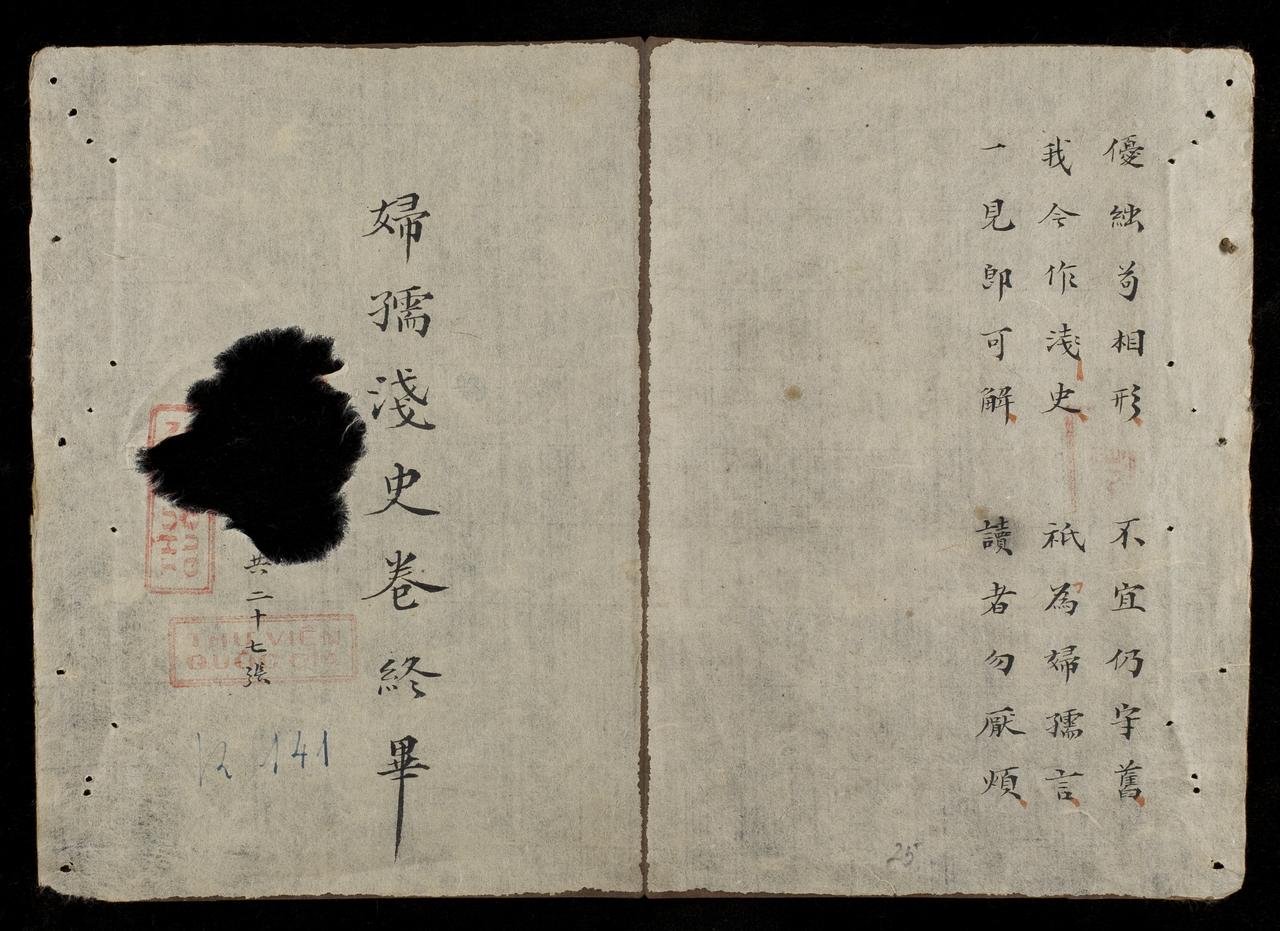 優絀苟相形　不宜仍守舊
我今作淺史　祇為婦孺言
一見即可解　讀者勿厭煩
25
婦孺淺史卷終畢
共二十七張
THƯ VIỆN
QUỐC GIA
R 141